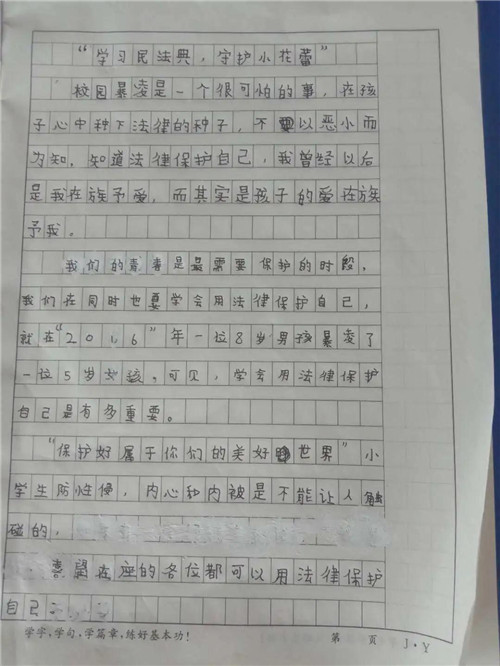 “学习民法典，守护小花蕾”
校园暴凌是一个很可怕的事，在孩
子心中种下法律的种子，不要以恶小而
为知，知道法律保护自己，我曾经以后
是我在族予爱，而其实是孩子的爱在族
予我。
我们的青春是最需要保护的时段，
我们在同时也要学会用法律保护自己，
就在“2016”年一位8岁男孩暴凌了
一位5岁女孩，可见，学会用法律保护
自己是有多重要。
“保护好属于你们的美好世界”小
学生防性侵，内心和内被是不能让人触
碰的，
希望在座的各位都可以用法律保护
自己
学字，学句，学篇章，练好基本功！
第 页
J·Y